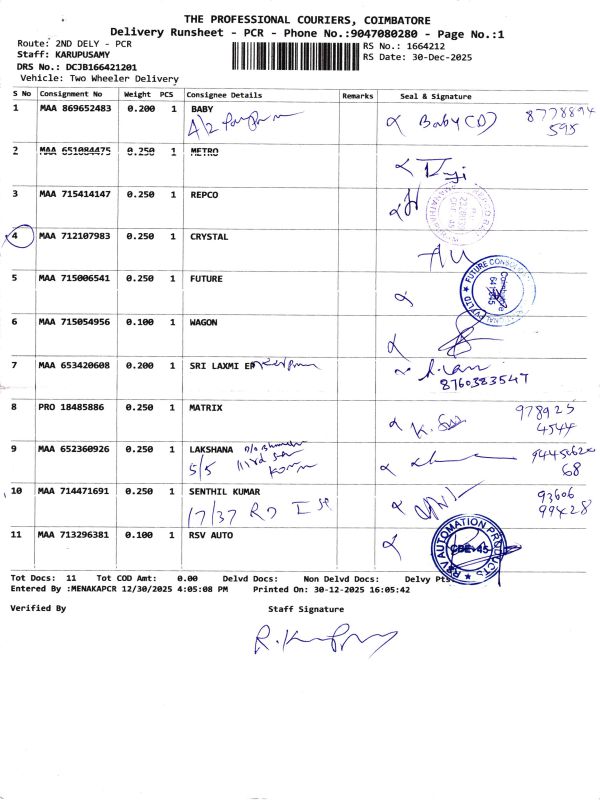 THE PROFESSIONAL COURIERS, COIMBATORE
Delivery Runsheet - PCR - Phone No.:9047080280 - Page No.:1
Route: 2ND DELY - PCR
RS No.: 1664212
Staff: KARUPUSAMY
RS Date: 30-Dec-2025
DRS No.: DCJB166421201
Vehicle: Two Wheeler Delivery
S No Consignment No Weight PCS Consignee Details Remarks Seal & Signature
1 MAA 869652483 0.200 1 BABY
A/2
Baby (D) 8778894
595
2 MAA 651084475 0.250 1 METRO
3 MAA 715414147 0.250 1 REPCO
4 MAA 712107983 0.250 1 CRYSTAL
5 MAA 715006541 0.250 1 FUTURE
FUTURE CONSOL
Coimbatore
6 MAA 715054956 0.100 1 WAGON
7 MAA 653420608 0.200 1 SRI LAXMI
8760383547
8 PRO 18485886 0.250 1 MATRIX
978925
4544
9 MAA 652360926 0.250 1 LAKSHANA
5/5
68
10 MAA 714471691 0.250 1 SENTHIL KUMAR
17/37 RD I st
93606
99428
11 MAA 713296381 0.100 1 RSV AUTO
RSV AUTOMATION PRODUCTS
CBE-45
Tot Docs: 11 Tot COD Amt: 0.00 Delvd Docs: Non Delvd Docs: Delvy Pts
Entered By :MENAKAPCR 12/30/2025 4:05:08 PM Printed On: 30-12-2025 16:05:42
Verified By Staff Signature